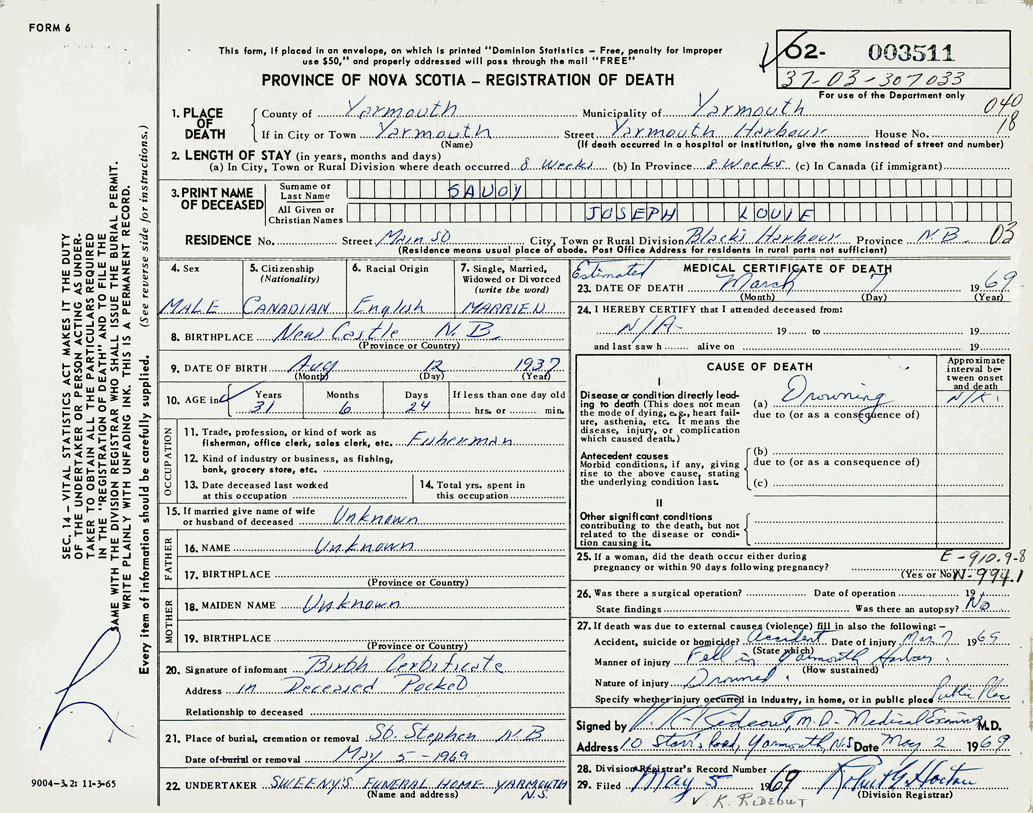 FORM 6
This form, if placed in an envelope, on which is printed "Dominion Statistics – Free, penalty for improper
use $50," and properly addressed will pass through the mail "FREE"
PROVINCE OF NOVA SCOTIA – REGISTRATION OF DEATH
02- 003511
37-03-307033
For use of the Department only
040
18
1. PLACE OF DEATH
County of Yarmouth Municipality of Yarmouth
If in City or Town Yarmouth Street Yarmouth Harbour House No.
(Name) (If death occurred in a hospital or institution, give the name instead of street and number)
2. LENGTH OF STAY (in years, months and days)
(a) In City, Town or Rural Division where death occurred 8 Weeks (b) In Province 8 Weeks (c) In Canada (if immigrant)
3. PRINT NAME OF DECEASED
Surname or Last Name SAVOY
All Given or Christian Names JOSEPH LOUIE
RESIDENCE No. Street Main SO City, Town or Rural Division Blacks Harbour Province N.B. 03
(Residence means usual place of abode. Post Office Address for residents in rural parts not sufficient)
4. Sex MALE
5. Citizenship (Nationality) CANADIAN
6. Racial Origin English
7. Single, Married, Widowed or Divorced (write the word) MARRIED
8. BIRTHPLACE New Castle N.B.
(Province or Country)
9. DATE OF BIRTH Aug 12 1937
(Month) (Day) (Year)
10. AGE in Years 31 Months 6 Days 24 If less than one day old hrs. or min.
OCCUPATION
11. Trade, profession, or kind of work as fisherman, office clerk, sales clerk, etc. Fisherman
12. Kind of industry or business, as fishing, bank, grocery store, etc.
13. Date deceased last worked at this occupation
14. Total yrs. spent in this occupation
15. If married give name of wife or husband of deceased Unknown
FATHER
16. NAME Unknown
17. BIRTHPLACE
(Province or Country)
MOTHER
18. MAIDEN NAME Unknown
19. BIRTHPLACE
(Province or Country)
20. Signature of informant Birth Certificate
Address in Deceased Pocket
Relationship to deceased
21. Place of burial, cremation or removal St. Stephen N.B
Date of burial or removal May 5-1969
22. UNDERTAKER SWEENY'S FUNERAL HOME YARMOUTH N.S.
(Name and address)
Estimated
MEDICAL CERTIFICATE OF DEATH
23. DATE OF DEATH March 7 1969
(Month) (Day) (Year)
24. I HEREBY CERTIFY that I attended deceased from:
N/A 19 to 19
and last saw h alive on 19
CAUSE OF DEATH
Approximate interval between onset and death
I
Disease or condition directly leading to death (This does not mean the mode of dying, e.g., heart failure, asthenia, etc. It means the disease, injury, or complication which caused death.)
(a) Drowning N/K.
due to (or as a consequence of)
Antecedent causes
Morbid conditions, if any, giving rise to the above cause, stating the underlying condition last.
(b)
due to (or as a consequence of)
(c)
II
Other significant conditions contributing to the death, but not related to the disease or condition causing it.
25. If a woman, did the death occur either during
pregnancy or within 90 days following pregnancy?
(Yes or No)
E-910.9-8
N-994.1
26. Was there a surgical operation? Date of operation 19
State findings Was there an autopsy? No
27. If death was due to external causes (violence) fill in also the following:–
Accident, suicide or homicide? Accident Date of injury Mar 7 1969
(State which)
Manner of injury Fell in Yarmouth Harbour.
(How sustained)
Nature of injury Drowned.
Specify whether injury occurred in Industry, in home, or in public place Public Place
Signed by V.K. Rideout, M.D. - Medical Examiner M.D.
Address 10 Starrs Road, Yarmouth, N.S Date May 2 1969
28. Division Registrar's Record Number
29. Filed May 5 1969
(Division Registrar)
V. K. RIDEOUT
SEC. 14 – VITAL STATISTICS ACT MAKES IT THE DUTY
OF THE UNDERTAKER OR PERSON ACTING AS UNDER-
TAKER TO OBTAIN ALL THE PARTICULARS REQUIRED
IN THE "REGISTRATION OF DEATH" AND TO FILE THE
SAME WITH THE DIVISION REGISTRAR WHO SHALL ISSUE THE BURIAL PERMIT.
WRITE PLAINLY WITH UNFADING INK. THIS IS A PERMANENT RECORD.
Every item of information should be carefully supplied. (See reverse side for instructions.)
9004–3.2: 11-3-65